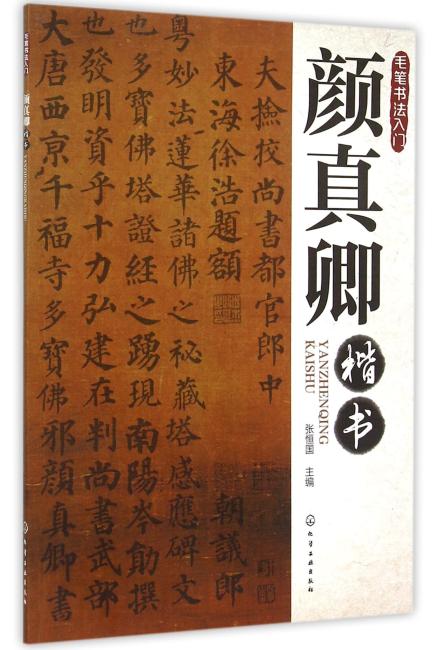 毛笔书法入门
颜真卿
楷书
YANZHENQING
KAISHU
张恒国 主编
化学工业出版社
夫撿挍尚書都官郎中
東海徐浩題額 朝議郎
粤妙法蓮華諸佛之秘藏塔感應碑文
也多寶佛塔證経之踴現南陽岑勛撰
也發明資乎十力弘建在判尚書武部
大唐西京千福寺多寶佛邪顔真卿書
毛笔书法入门
颜真卿
楷书
YANZHENQING KAISHU